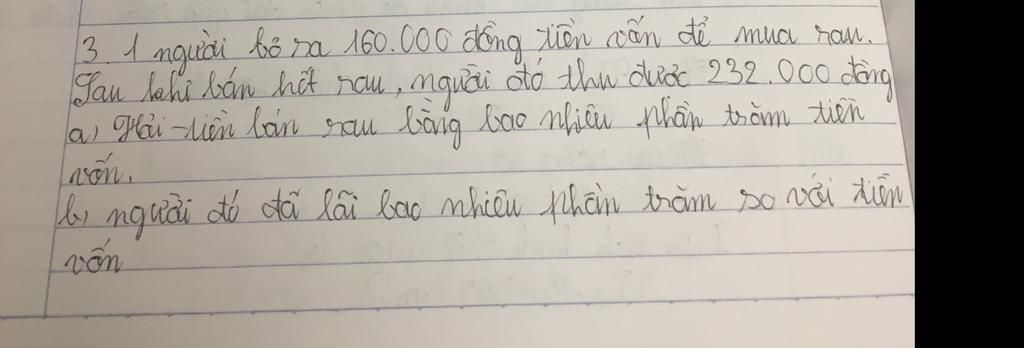 3. 1 người bỏ ra 160.000 đồng tiền vốn để mua rau.
Sau khi bán hết rau, người đó thu được 232.000 đồng
a) Hỏi tiền bán rau bằng bao nhiêu phần trăm tiền
vốn.
b) người đó đã lãi bao nhiêu phần trăm so với tiền
vốn